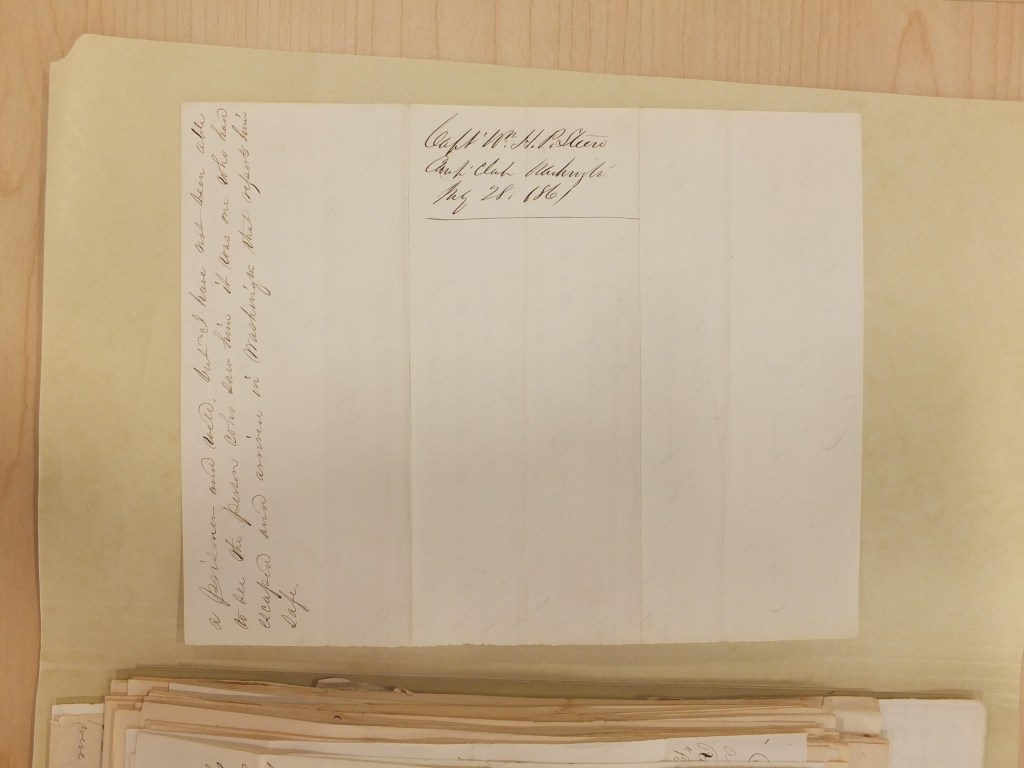 a prisoner and well. but I have not been able
to see the person who saw him it was one who had
escaped and arrived in Washington that reports him
safe.
Capt Wm H. P. Steen
Camp Clark Washingtn
July 28. 1861